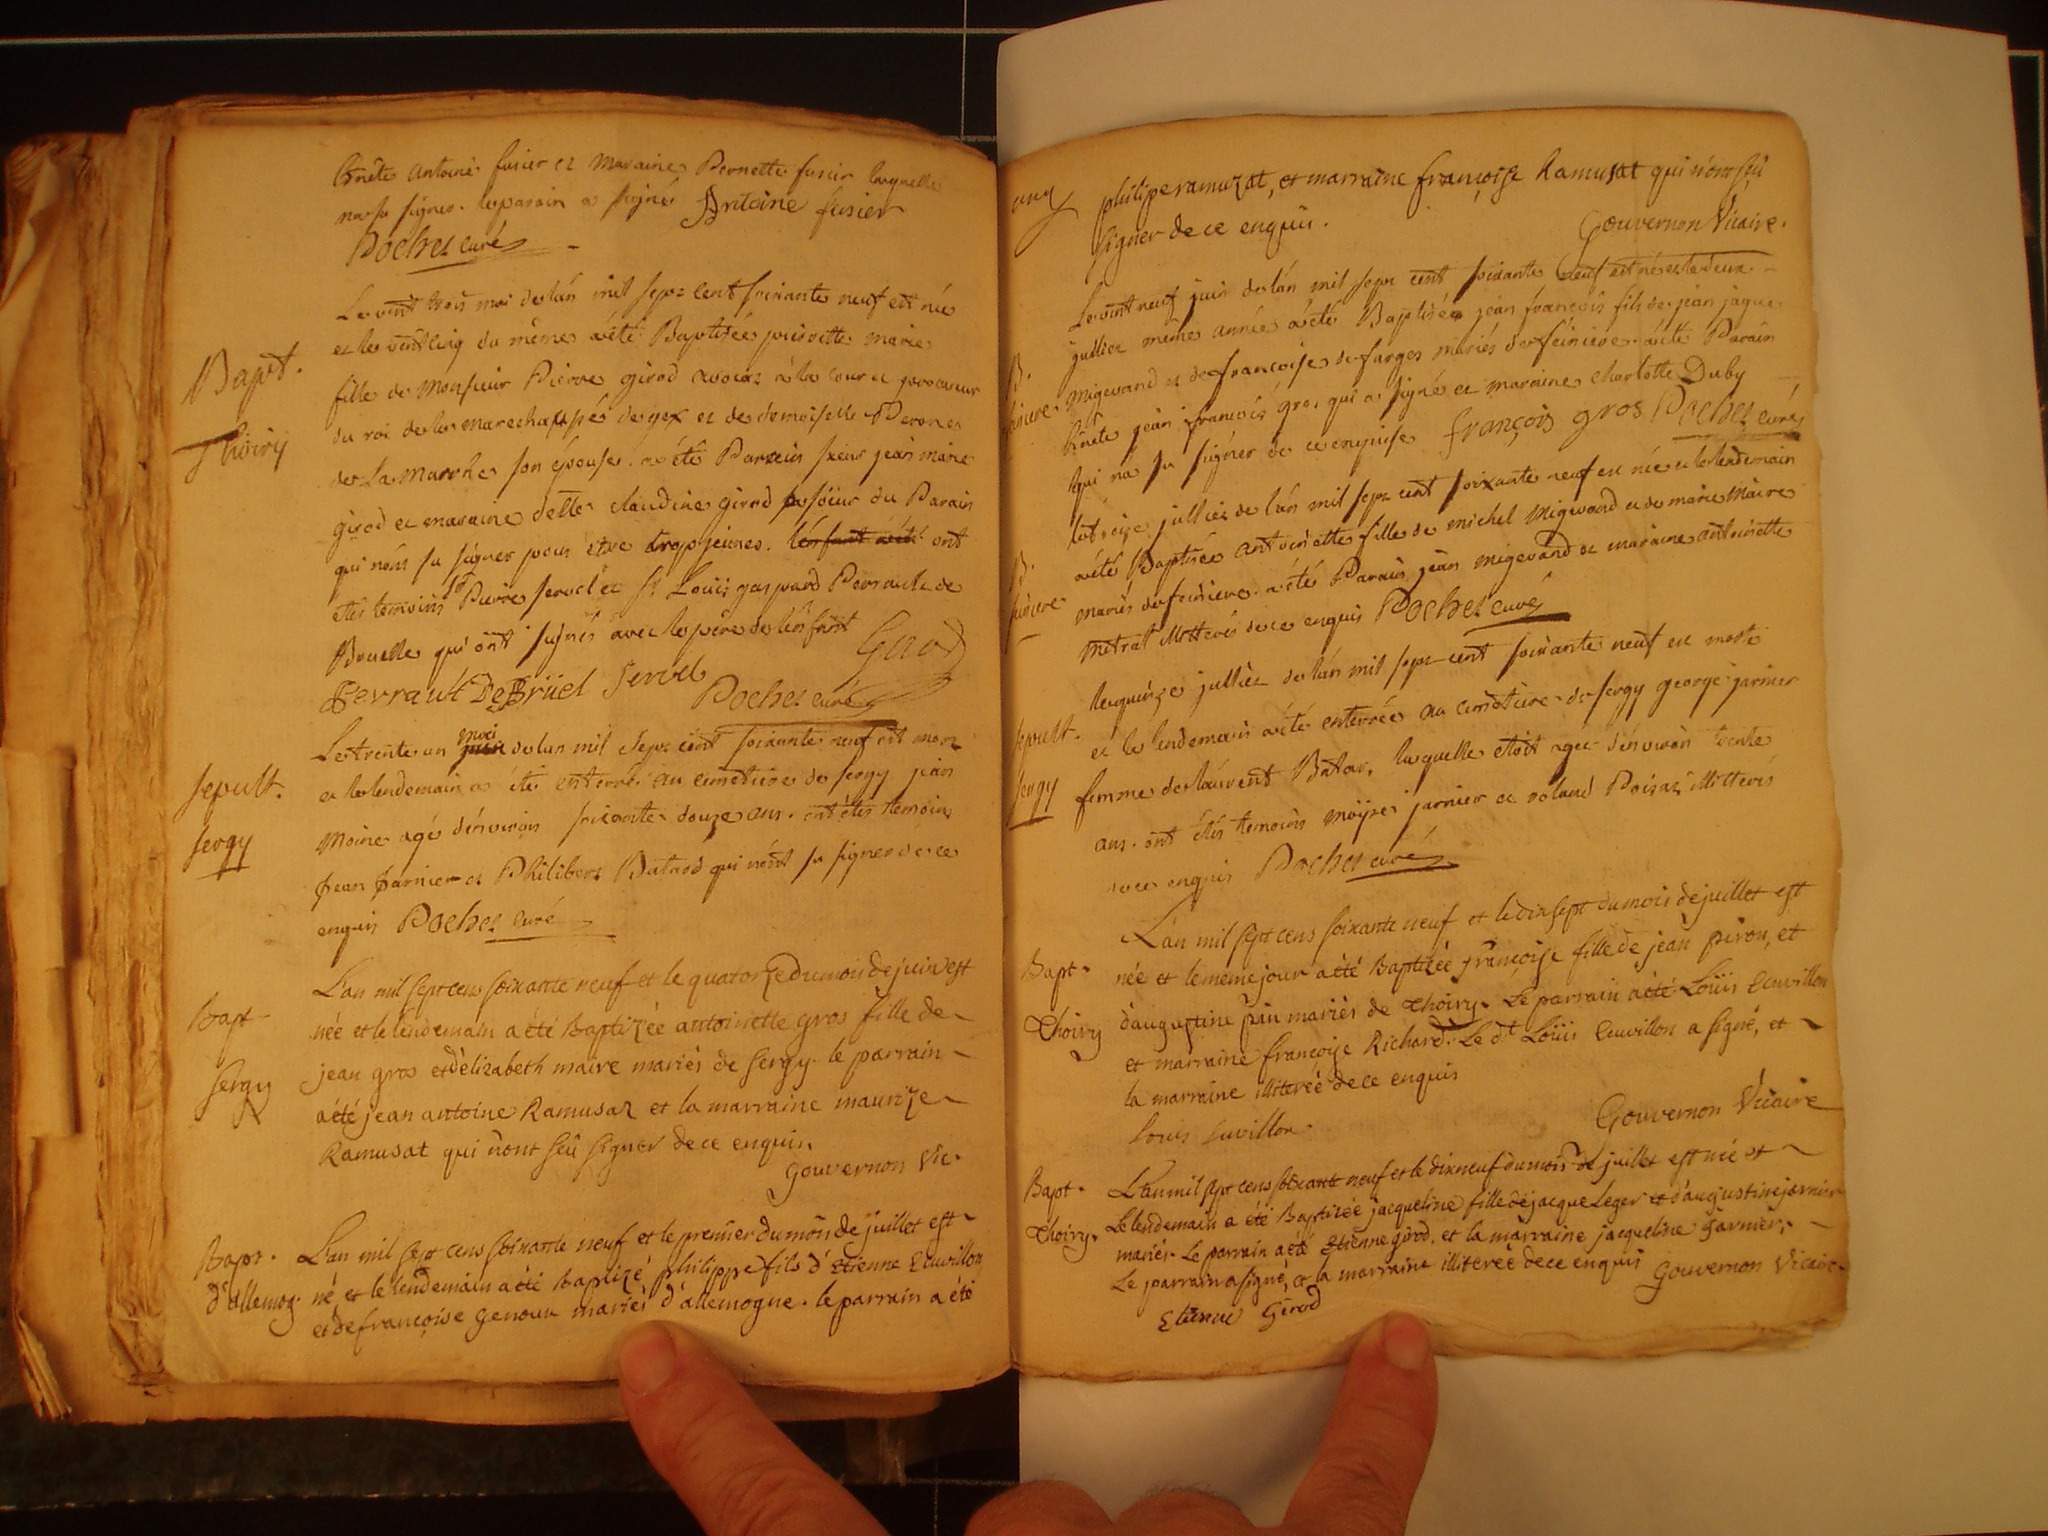 honête antoine fusier et maraine Pernette fusier laquelle
na su signer. le parain a signé Antoine fusier
Pochet curé
Bapt.
Thoiry
Le vint trois mai de lan mil sept cent soixante neuf est née
et le vint cinq du même a été Baptisée pierrette marie
fille de Monsieur Pierre girod avocat à la cour et procureur
du roi de la marechaussée de gex et de demoiselle Perone
de La Marche son épouse. a été Parain sieur jean marie
girod et maraine delle claudine girod soeur du Parain
qui n'ont su signer pour etre trop jeunes. l'enfant a été ont
étés temoins sr Pierre servel et sr Louis gaspard Perrault de
Bruelle qui ont signés avec le père de l'enfant Girod
Perrault DeBrüel Servel
Pochet curé
Sepult.
Sergy
Le trente un mai de lan mil sept cent soixante neuf est mort
et le lendemain a été enterré au cimetiere de sergy jean
Moine agé d'environ soixante douze ans. ont étés temoins
jean jarnier et Philibert Batard qui n'ont su signer de ce
enquis Pochet curé
Bapt
Sergy
L'an mil sept cens soixante neuf et le quatorze du mois de juin est
née et le lendemain a été Baptizée antoinette gros fille de
jean gros et d'élizabeth maire mariés de Sergy. le parrain
a été jean antoine Ramusat et la marraine maurize
Ramusat qui n'ont sçû signer de ce enquis
Gouvernon Vic.
Bapt.
d'allemog.
L'an mil sept cens soixante neuf et le premier du mois de juillet est
né et le lendemain a été baptizé philippe fils d'Etienne Cuvillon
et de françoise genoux mariés d'allemogne. le parrain a été
philipe ramuzat, et marraine françoise Ramusat qui n'ont sçû
signer de ce enquis.
Gouvernon Vicaire.
B.
Le vint neuf juin de lan mil sept cent soixante neuf est né et le deux
julliet même année a été Baptisé jean françois fils de jean jaque
migevand et de francoise de farges mariés de feniere. a été Parain
honête jean francois gros, qui a signé et maraine charlotte Duby
qui na su signer de ce enquise françois gros Pochet curé
B.
feniere
Le treize julliet de lan mil sept cent soixante neuf est née et le lendemain
a été Baptisée antoinette fille de michel migevand et de marie Maire
mariés de feniere. a été Parain jean migevand et maraine antoinette
mitral illitterés de ce enquis Pochet curé
Sepult.
Sergy
Le quinze julliet de lan mil sept cent soixante neuf est morte
et le lendemain a été enterrée au cimetiere de sergy george jarnier
femme de laurent Batar, laquelle étoit agée d'environ trente
ans. ont étés temoins moyse jarnier et roland Poizat illitterés
de ce enquis Pochet curé
Bapt.
Thoiry
L'an mil sept cens soixante neuf et le dix sept du mois de juillet est
née et le meme jour a été Baptizée françoise fille de jean piron, et
d'augustine pin mariés de Thoiry. Le parrain a été Loüis Cuvillon
et marraine françoise Richard. Le dt Loüis Cuvillon a signé, et
la marraine illiterée de ce enquis
Gouvernon Vicaire
Louis Cuvillon.
Bapt.
Thoiry.
L'an mil sept cens soixante neuf et le dix neuf du mois de juillet est née et
Le lendemain a été Baptizée jacqueline fille de jacque Leger et d'augustine jarnier
mariés. Le parrain a été Etienne girod, et la marraine jacqueline Garnier.
Le parrain a signé, et la marraine illiterée de ce enquis Gouvernon Vicaire.
Etienne Girod